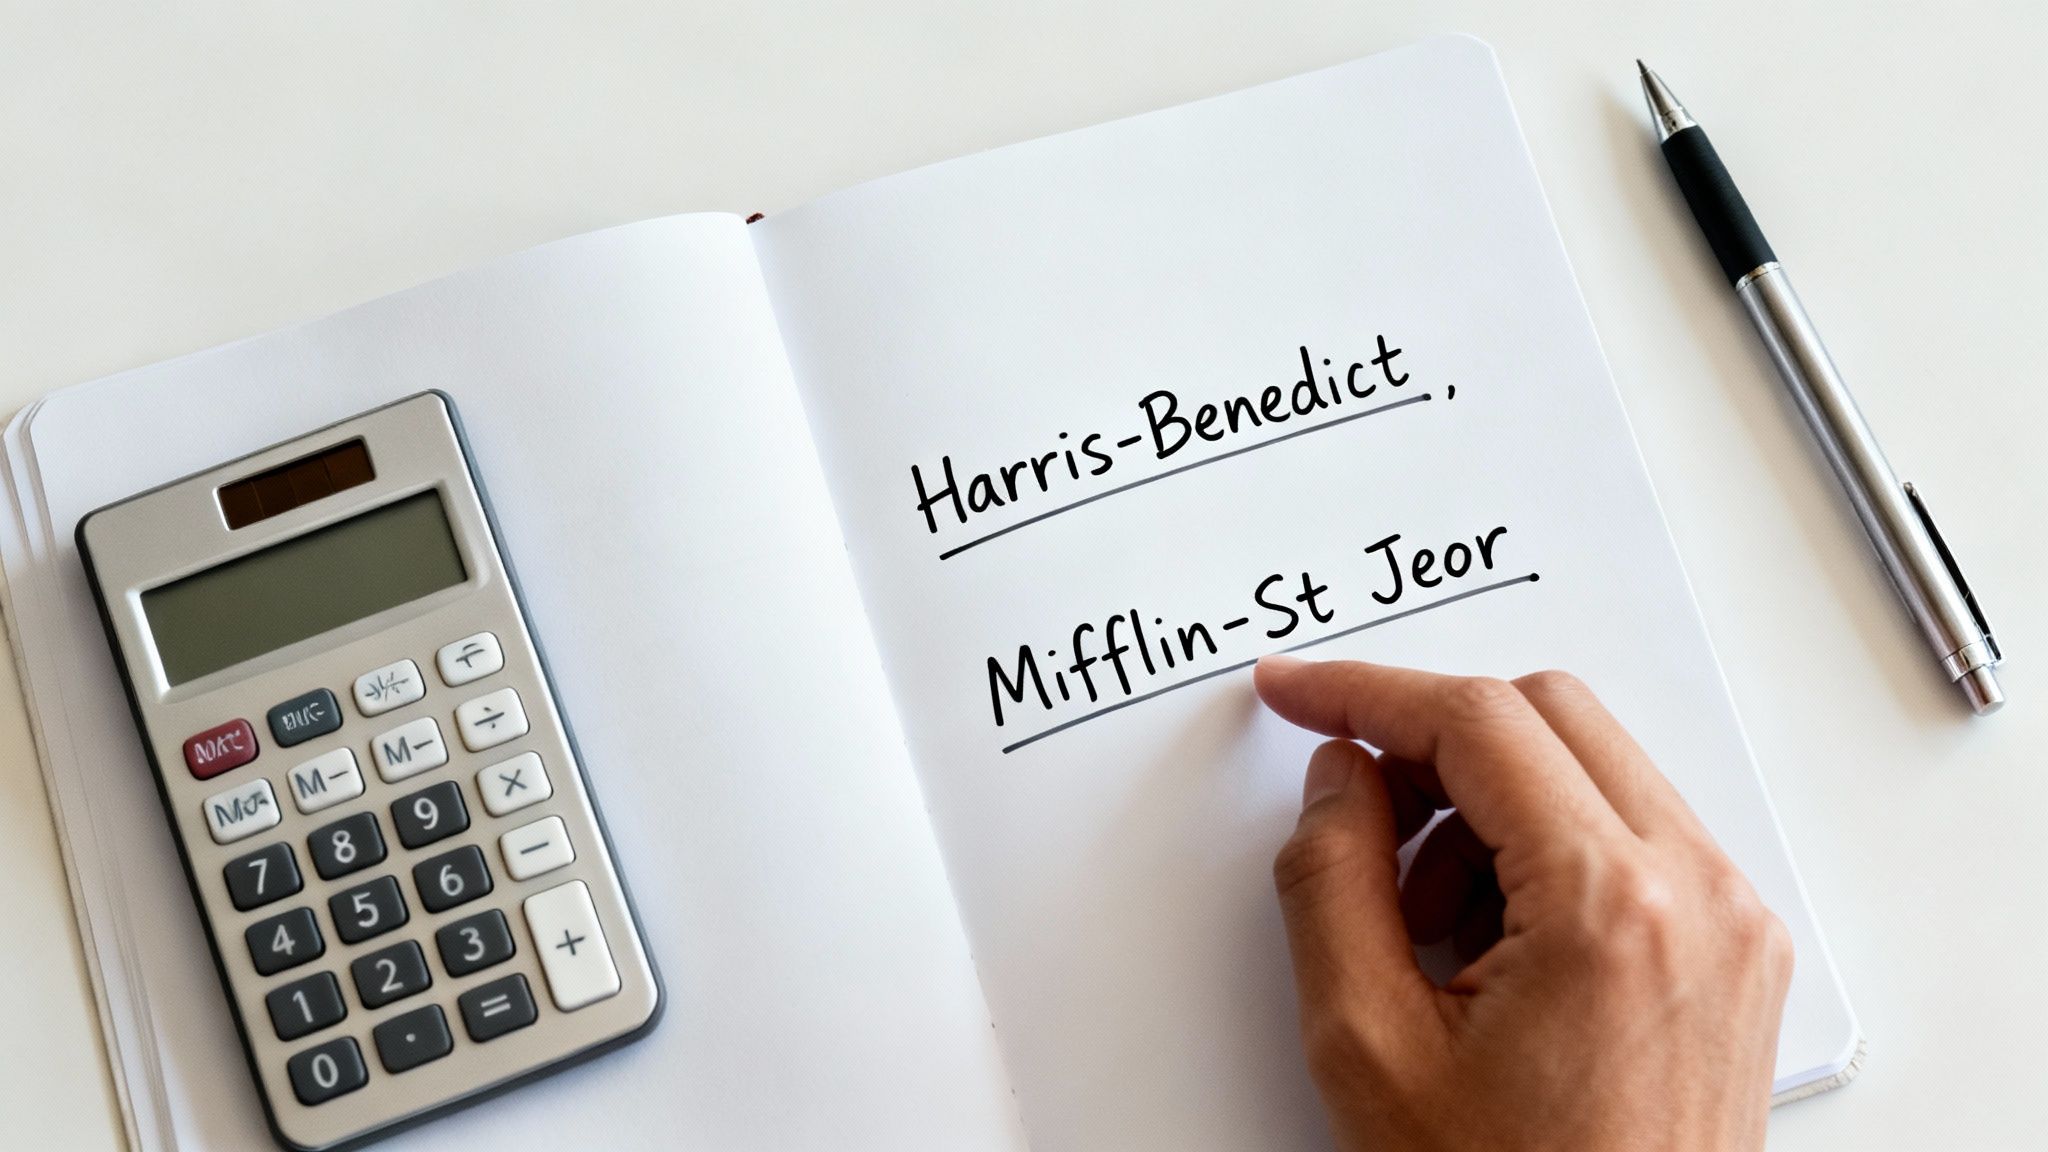 Harris-Benedict,
Mifflin-St Jeor
÷
M- M- ×
7 8 9 -
4 5 6 +
1 2 3
0 . =